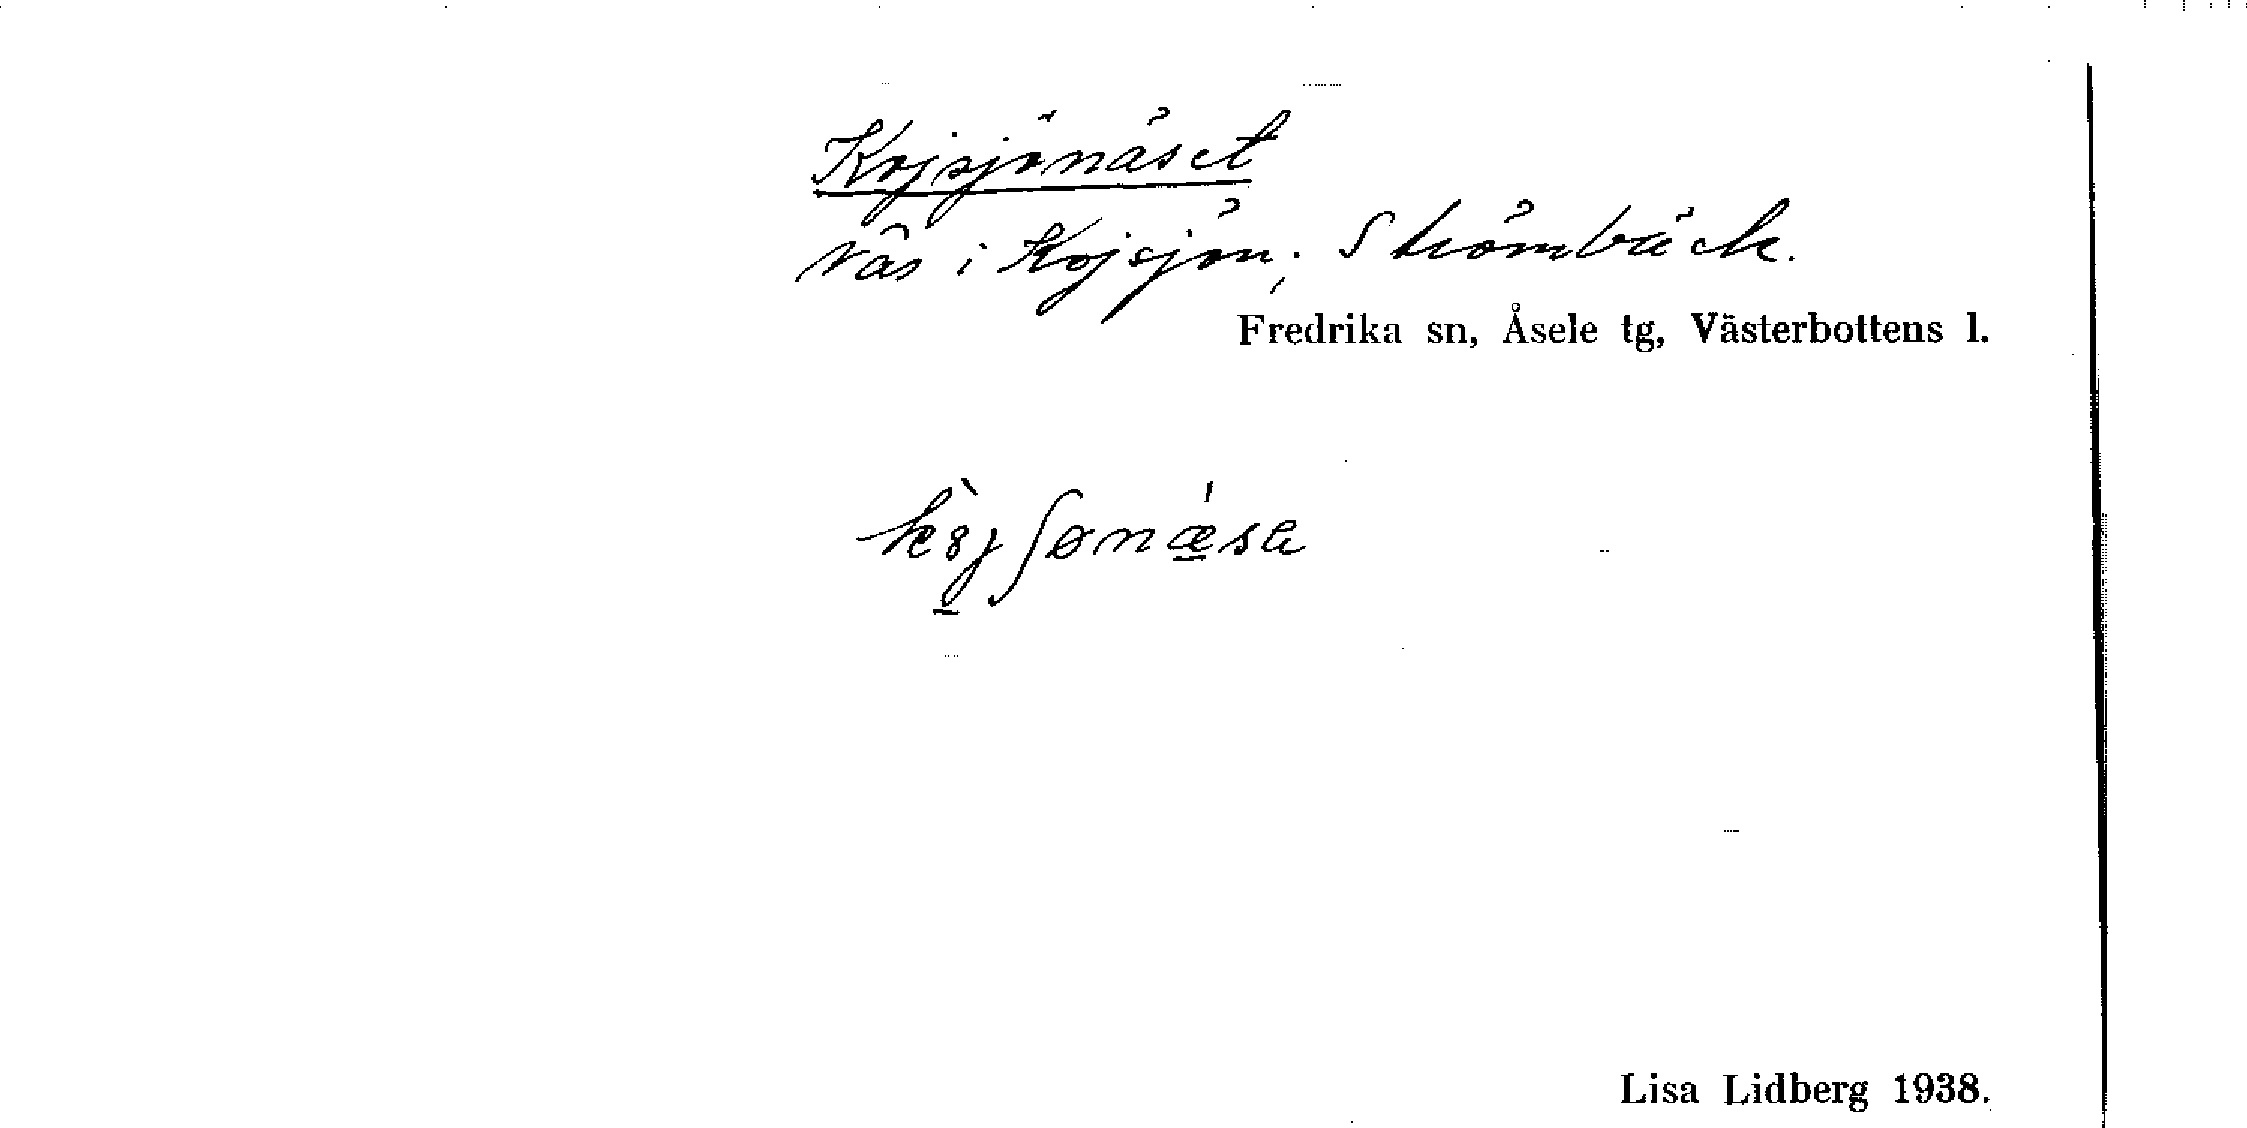 Kojsjönäset
näs i Kojsjön; Strömbäck.
Fredrika sn, Åsele tg, Västerbottens l.
Lisa Lidberg 1938.